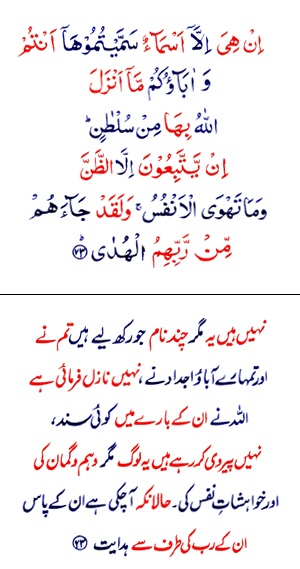 اِنْ هِىَ اِلَّاۤ اَسْمَآءٌ سَمَّيْتُمُوْهَاۤ اَنْتُمْ
وَ اٰبَآؤُكُمْ مَّاۤ اَنْزَلَ
اللهُ بِهَا مِنْ سُلْطٰنٍ ؕ
اِنْ يَّتَّبِعُوْنَ اِلَّا الظَّنَّ
وَمَا تَهْوَى الْاَنْفُسُ ۚ وَلَقَدْ جَآءَهُمْ
مِّنْ رَّبِّهِمُ الْهُدٰى ؕ ﴿۲۳﴾
نہیں ہیں یہ مگر چند نام جو رکھ لیے ہیں تم نے
اور تمہارے آباؤ اجداد نے ، نہیں نازل فرمائی ہے
اللہ نے ان کے بارے میں کوئی سند ،
نہیں پیروی کر رہے ہیں یہ لوگ مگر وہم و گمان کی
اور خواہشاتِ نفس کی ۔ حالانکہ آچکی ہے ان کے پاس
ان کے رب کی طرف سے ہدایت ﴿۲۳﴾